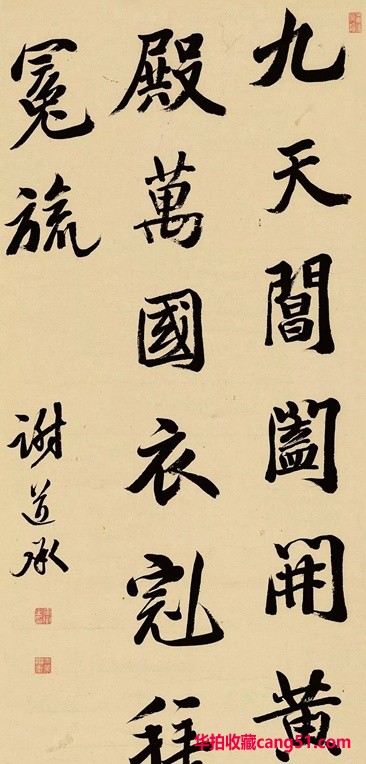 九天閶闔開黃
殿萬國衣冠拜
冕旒
謝道承
华拍收藏cang51.com